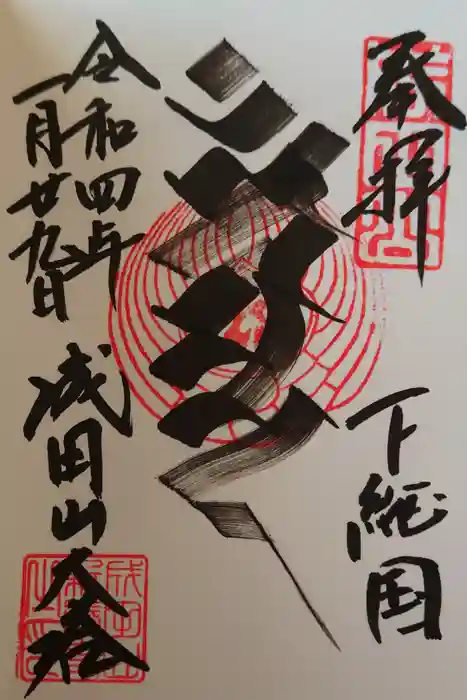 奉拝
下総国
令和四年
一月廿九日
成田山大塔